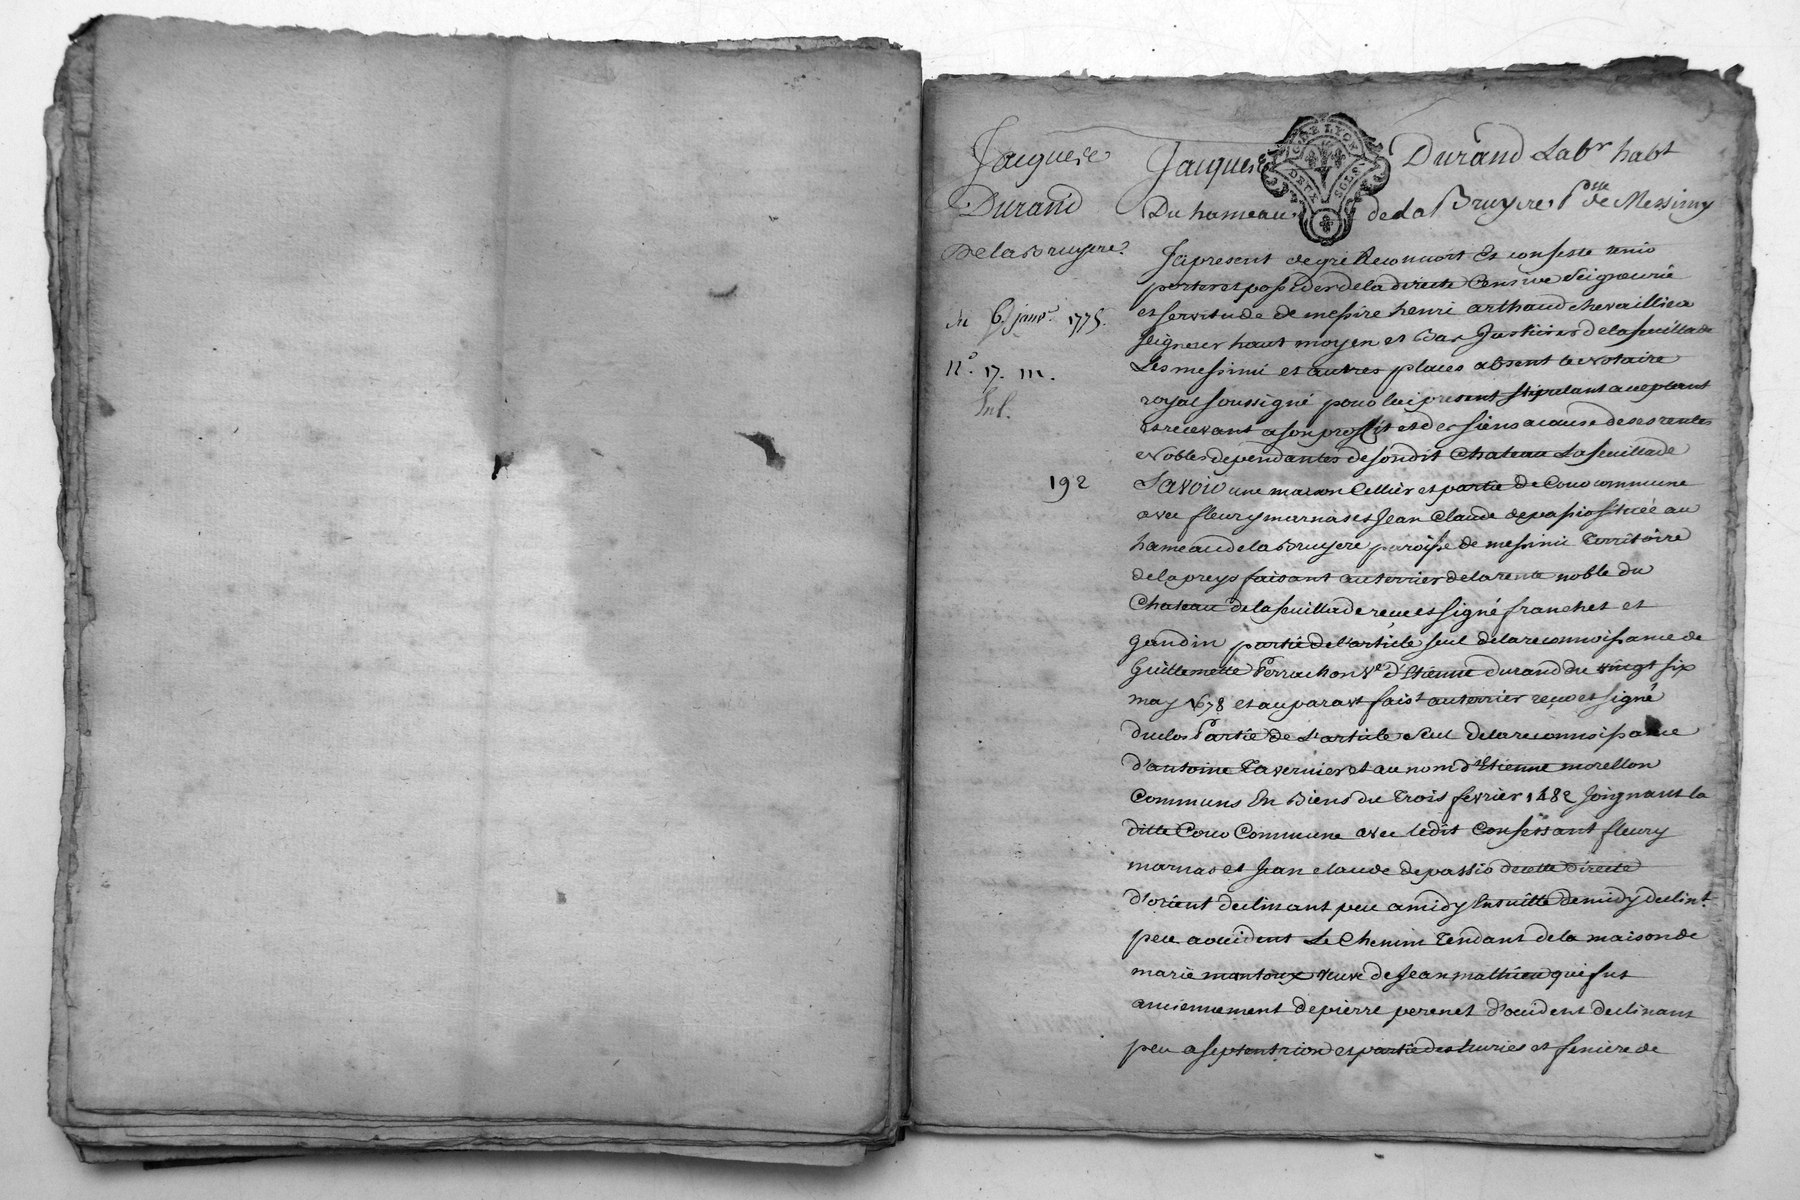 Jacques
Durand
De la Bruyere
du 6 janvr. 1775.
n°. 17. m.
192
GEN. DE LYON
DEUX SOLS
Jacques Durand Labr habt
Du hameau de la Bruyere, psse de Messimy
Ja present de gré Reconnoit et confesse tenir
porter et posseder de la directe Censive Seigneurie
et servitude de messire henri arthaud chevaillier
seigneur haut moyen et bas Justicier de la feuillade
Les messimi et autres places absent le notaire
royal soussigné pour lui present stipulant acceptant
et recevant a son proffit et des siens a cause de ses rentes
Nobles dependantes de son dit Chateau La feuillade
Savoir une maison Cellier et partie de Cour commune
avec fleury marnas et Jean Claude depassio située au
hameau de la bruyere paroisse de messimi Territoire
de la preys faisant au terrier de la rente noble du
Chateau de la feuillade reçu et signé franchet et
gondin partie de l'article seul de la reconnoissance de
Guillemette Perrachon ve d'Etienne durand du vingt six
may 1678 et auparavt faist au terrier reçu et signé
duclos Partie de L'article Seul de la reconnoissance
d'antoine Tavernier et au nom d'Etienne morellon
Communs En Biens du Trois fevrier 1482 Joignant la
ditte Cour Commune avec ledit Confessant fleury
marnas et Jean claude depassio de cette directe
d'orient declinant peu a midy Ensuitte de midy declint
peu a occident Le Chemin Tendant de la maison de
marie mantoux veuve de Jean mathieu qui fut
anciennement de pierre perenet d'occident declinant
peu a septentrion et partie des Ecuries et feniere de